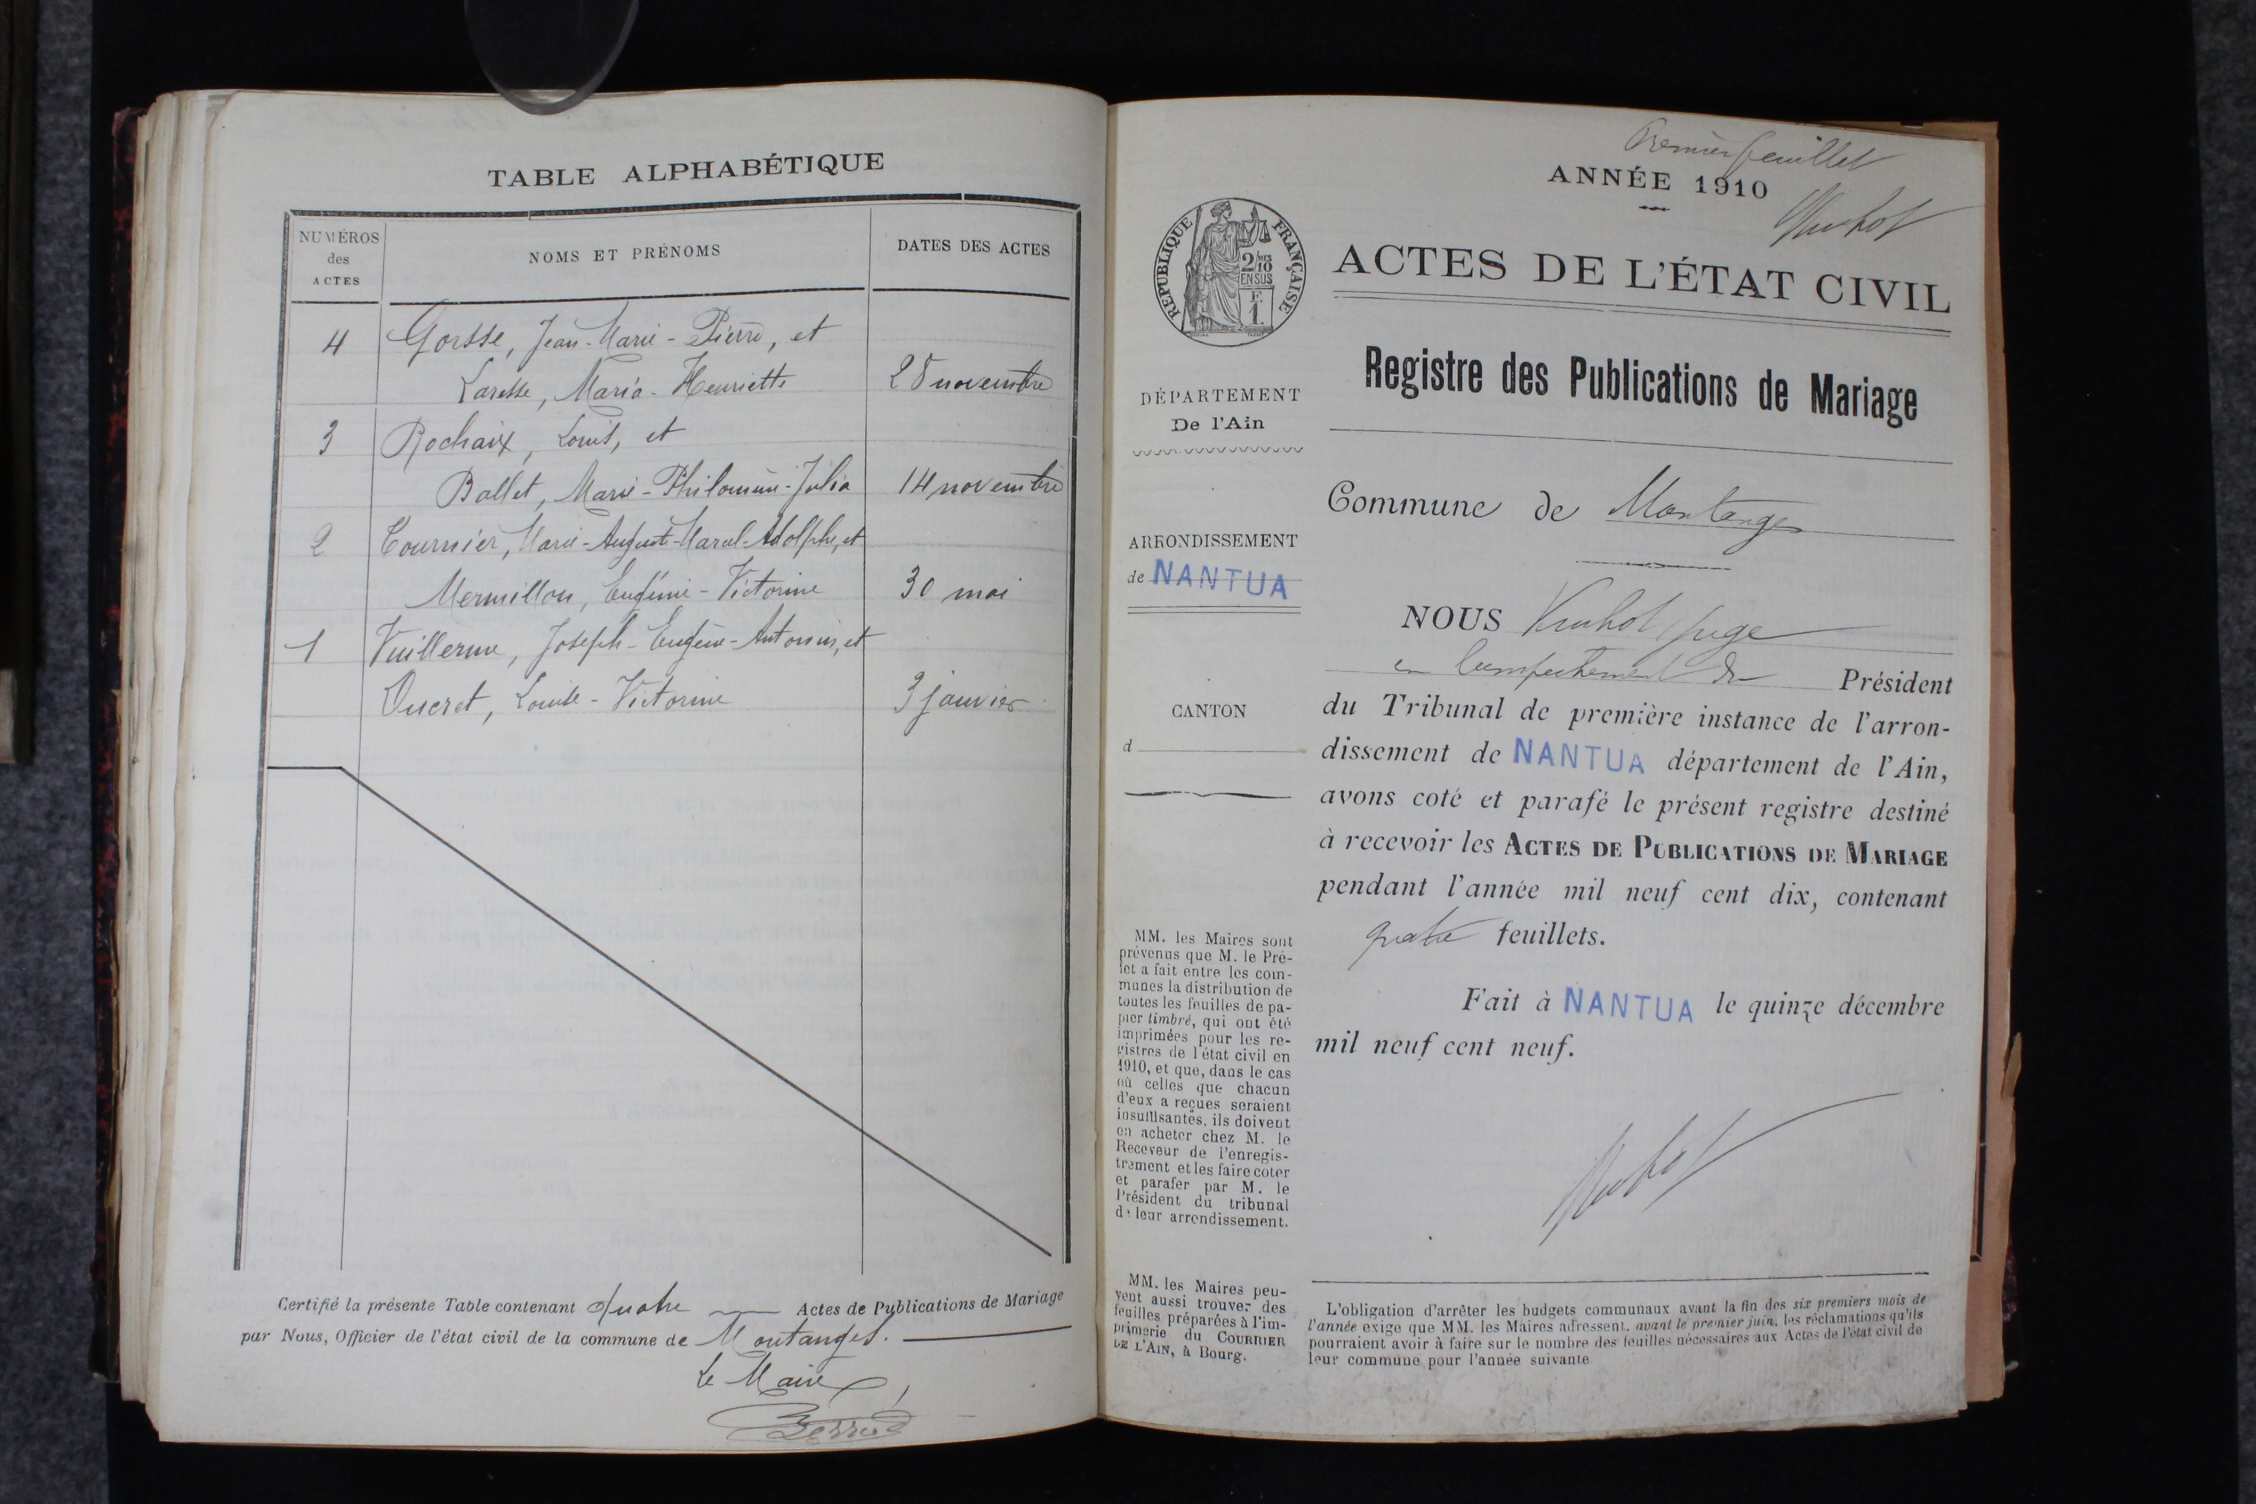 TABLE ALPHABÉTIQUE
NUMÉROS des ACTES
NOMS ET PRÉNOMS
DATES DES ACTES
4 Gorsse, Jean-Marie-Pierre, et
Laresse, Maria-Henriette 28 novembre
3 Rochaix, Louis, et
Ballet, Marie-Philomène-Julia 14 novembre
2 Tournier, Marie-August-Marcel-Adolphe, et
Mermillon, Eugénie-Victorine 30 mai
1 Vuillerme, Joseph-Eugène-Antonin, et
Ducret, Louise-Victorine 3 janvier
Certifié la présente Table contenant quatre Actes de Publications de Mariage
par Nous, Officier de l'état civil de la commune de Montanges.
Le Maire,
Premier feuillet
ANNÉE 1910
RÉPUBLIQUE FRANÇAISE
2/10
EN SUS
F.
1.
ACTES DE L'ÉTAT CIVIL
Registre des Publications de Mariage
DÉPARTEMENT
De l'Ain
ARRONDISSEMENT
de NANTUA
CANTON
d
MM. les Maires sont
prévenus que M. le Pré-
fet a fait entre les com-
munes la distribution de
toutes les feuilles de pa-
pier timbré, qui ont été
imprimées pour les re-
gistres de l'état civil en
1910, et que, dans le cas
où celles que chacun
d'eux a reçues seraient
insuffisantes, ils doivent
en acheter chez M. le
Receveur de l'enregis-
trement et les faire coter
et parafer par M. le
Président du tribunal
de leur arrondissement.
MM. les Maires peu-
vent aussi trouver des
feuilles préparées à l'im-
primerie du COURRIER
DE L'AIN, à Bourg.
Commune de Montanges
NOUS juge
en empêchement du Président
du Tribunal de première instance de l'arron-
dissement de NANTUA département de l'Ain,
avons coté et parafé le présent registre destiné
à recevoir les ACTES DE PUBLICATIONS DE MARIAGE
pendant l'année mil neuf cent dix, contenant
quatre feuillets.
Fait à NANTUA le quinze décembre
mil neuf cent neuf.
L'obligation d'arrêter les budgets communaux avant la fin des six premiers mois de
l'année exige que MM. les Maires adressent, avant le premier juin, les réclamations qu'ils
pourraient avoir à faire sur le nombre des feuilles nécessaires aux Actes de l'état civil de
leur commune pour l'année suivante